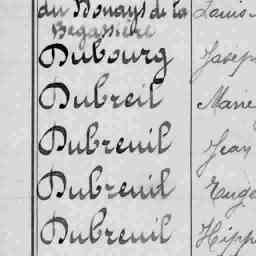 du Bouays de la Louis
Begassière
Dubourg Josep
Dubreil Marie
Dubreuil Jean
Dubreuil Eugè
Dubreuil Hipp